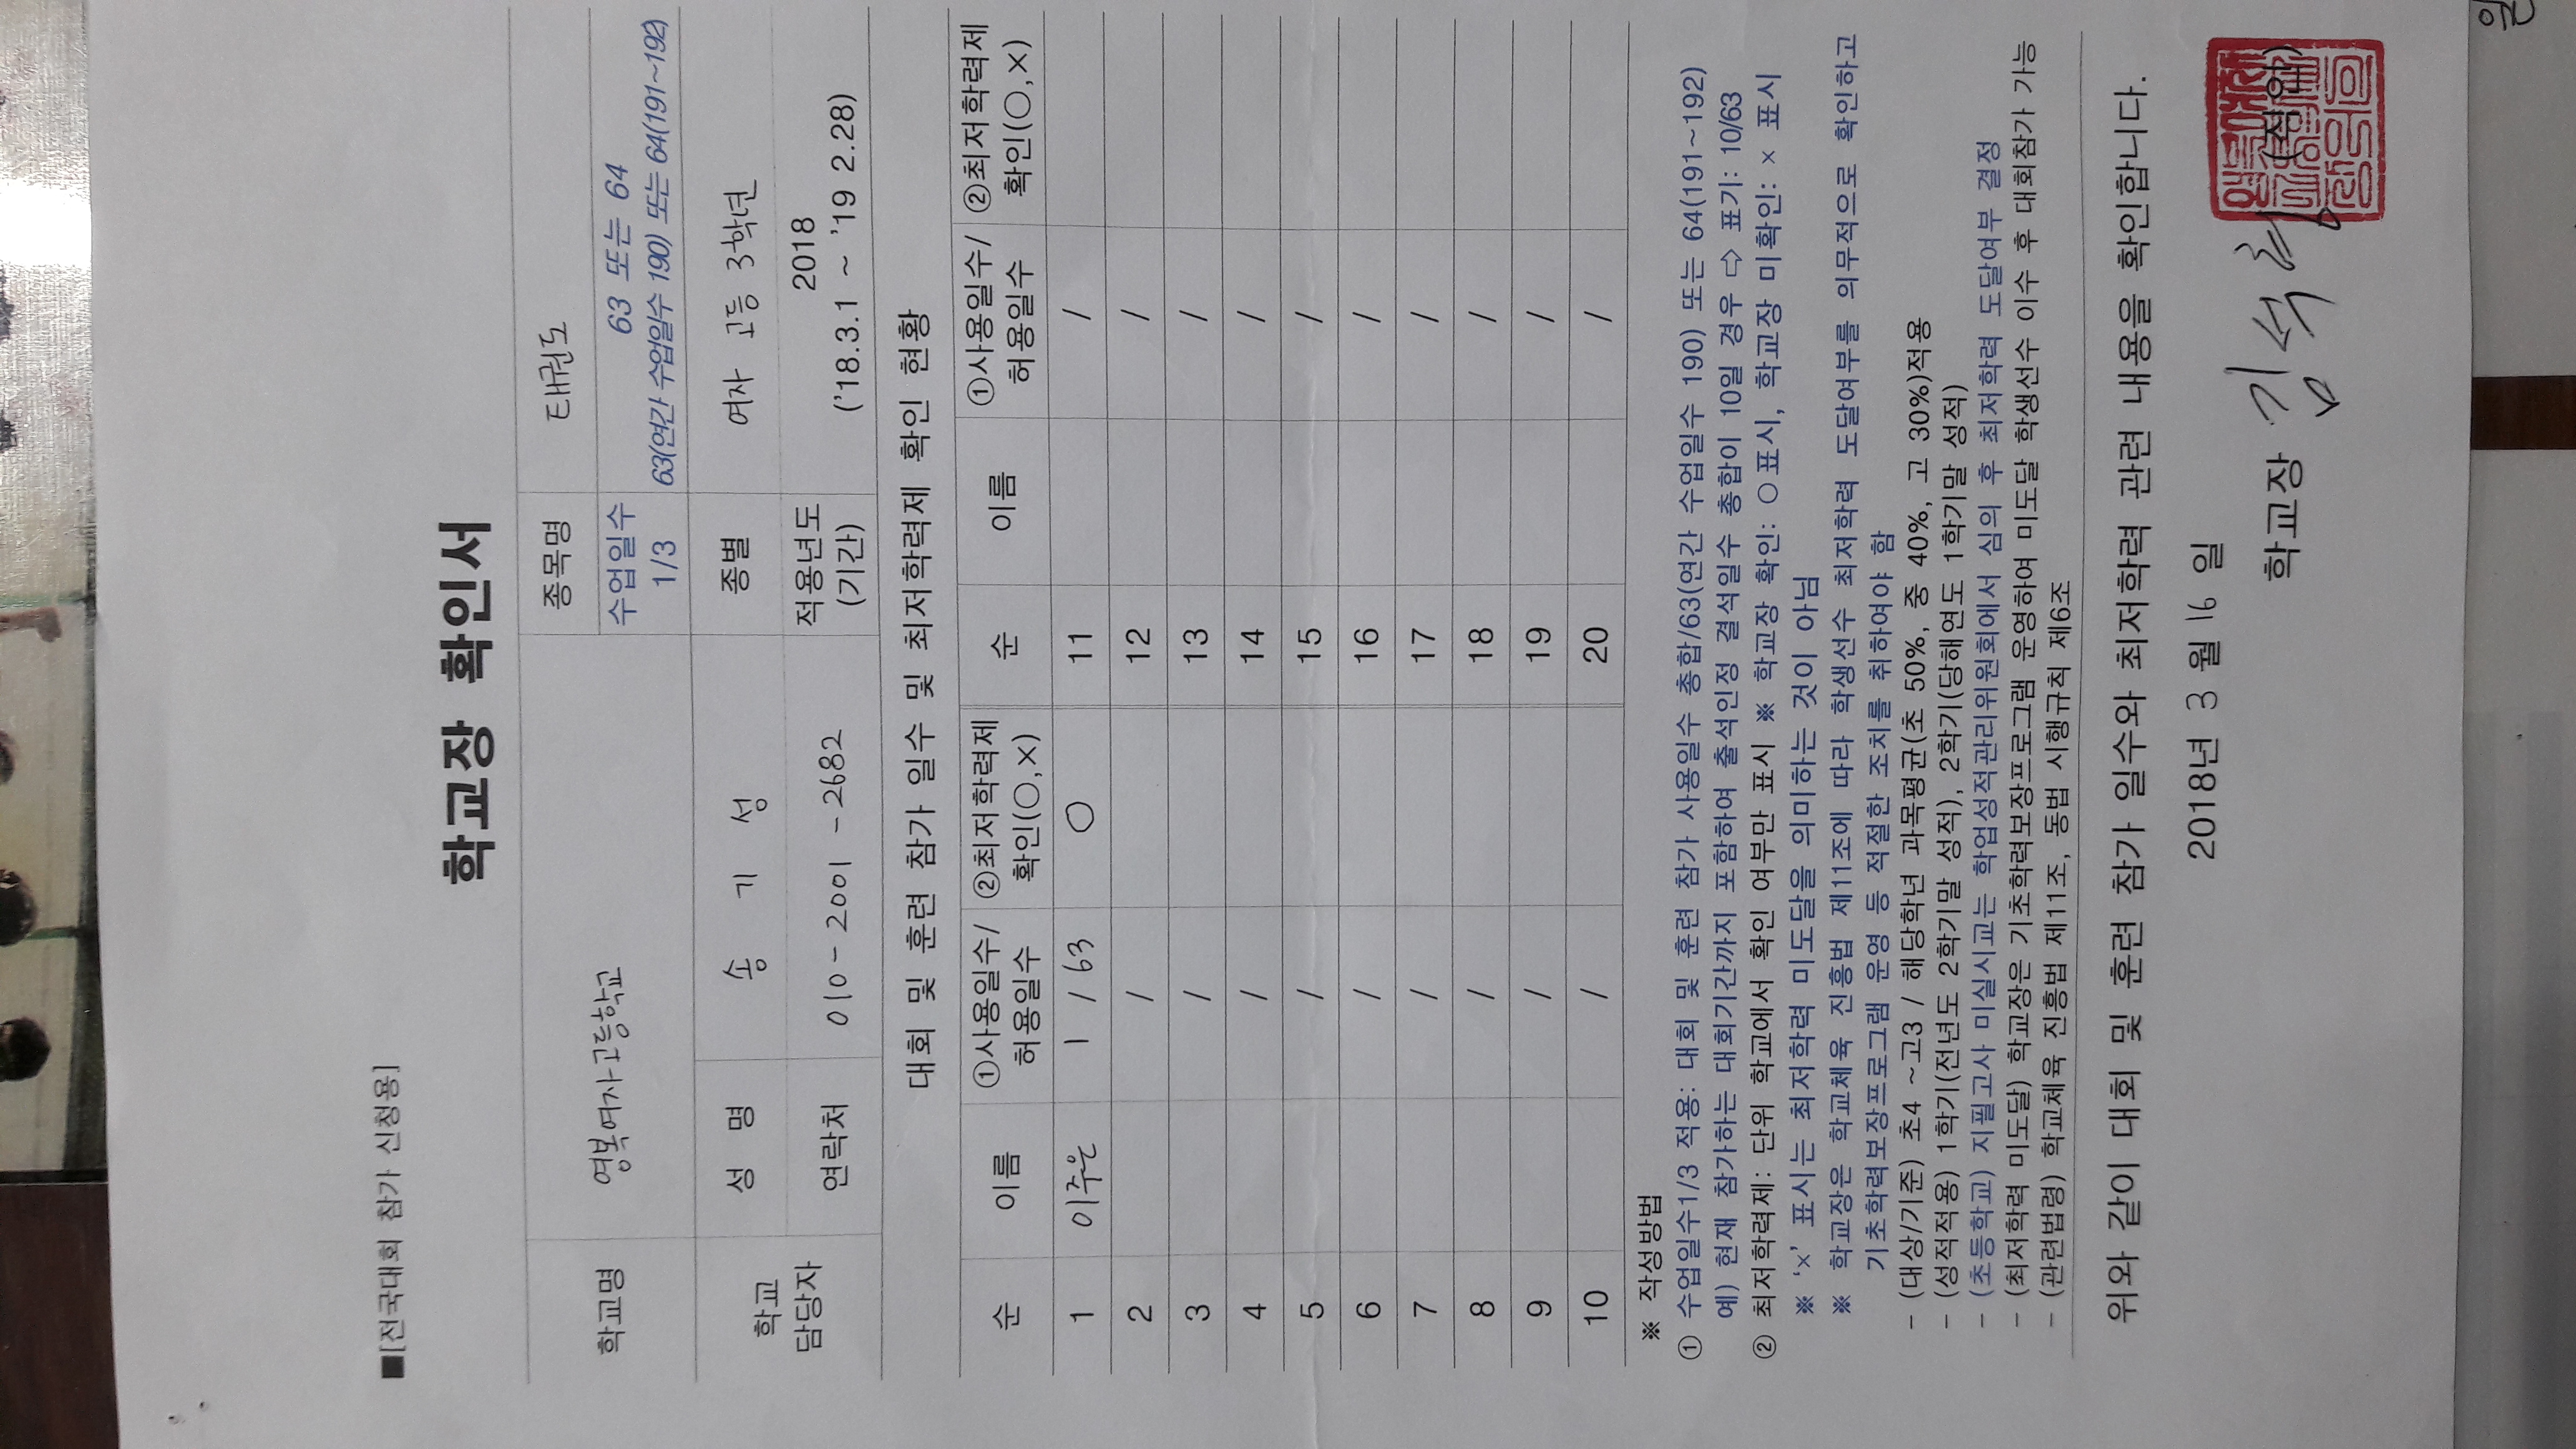 ■[전국대회 참가 신청용]
학교장 확인서
학교명 영복여자고등학교 종목명 태권도
수업일수 1/3 63 또는 64
63(연간 수업일수 190) 또는 64(191~192)
학교 담당자 성 명 송 기 성 종별 여자 고등 3학년
연락처 010-2001-2682 적용년도 (기간) 2018
('18.3.1 ~ '19 2.28)
대회 및 훈련 참가 일수 및 최저학력제 확인 현황
순 이름 ①사용일수/허용일수 ②최저학력제 확인(○,×) 순 이름 ①사용일수/허용일수 ②최저학력제 확인(○,×)
1 이주은 1 / 63 ○ 11 /
2 / 12 /
3 / 13 /
4 / 14 /
5 / 15 /
6 / 16 /
7 / 17 /
8 / 18 /
9 / 19 /
10 / 20 /
※ 작성방법
① 수업일수1/3 적용: 대회 및 훈련 참가 사용일수 총합/63(연간 수업일수 190) 또는 64(191~192)
예) 현재 참가하는 대회기간까지 포함하여 출석인정 결석일수 총합이 10일 경우 ⇨ 표기: 10/63
② 최저학력제: 단위 학교에서 확인 여부만 표시 ※ 학교장 확인: ○표시, 학교장 미확인: × 표시
※ '×' 표시는 최저학력 미도달을 의미하는 것이 아님
※ 학교장은 학교체육 진흥법 제11조에 따라 학생선수 최저학력 도달여부를 의무적으로 확인하고
기초학력보장프로그램 운영 등 적절한 조치를 취하여야 함
- (대상/기준) 초4 ~고3 / 해당학년 과목평균(초 50%, 중 40%, 고 30%)적용
- (성적적용) 1학기(전년도 2학기말 성적), 2학기(당해연도 1학기말 성적)
- (초등학교) 지필고사 미실시교는 학업성적관리위원회에서 심의 후 최저학력 도달여부 결정
- (최저학력 미도달) 학교장은 기초학력보장프로그램 운영하여 미도달 학생선수 이수 후 대회참가 가능
- (관련법령) 학교체육 진흥법 제11조, 동법 시행규칙 제6조
위와 같이 대회 및 훈련 참가 일수와 최저학력 관련 내용을 확인합니다.
2018년 3 월 16 일
학교장 김석 (직인)
일